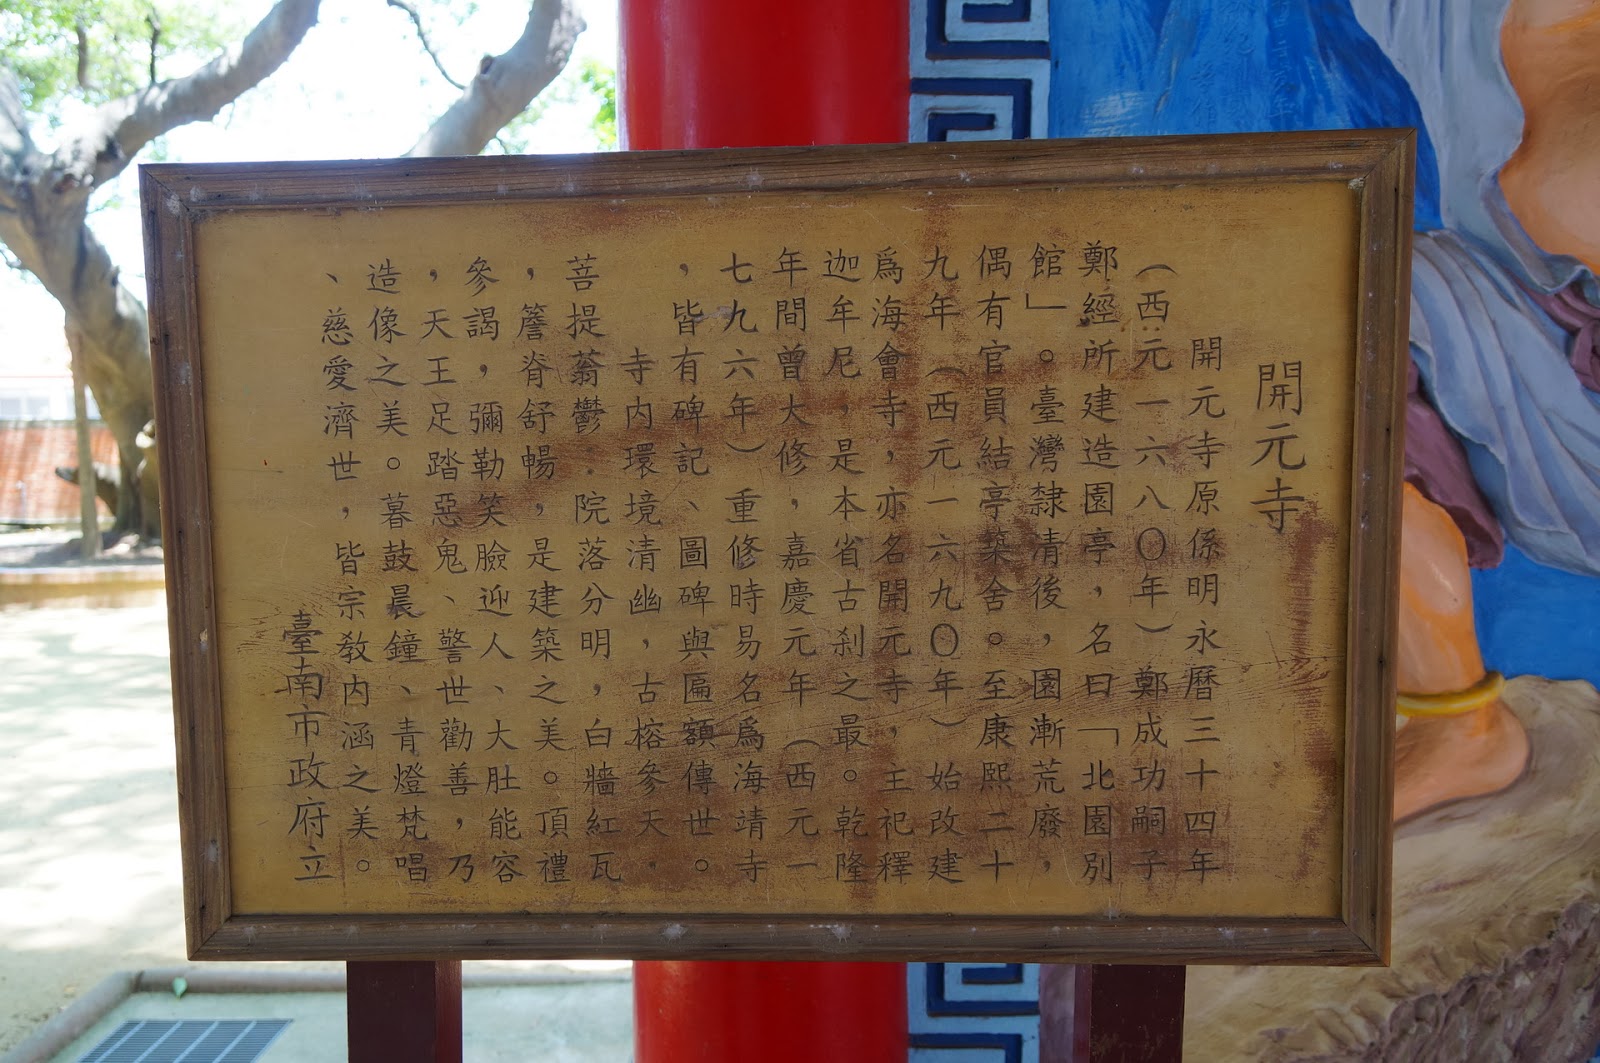 開元寺
開元寺原係明永曆三十四年
（西元一六八〇年）鄭成功嗣子
鄭經所建造園亭，名曰「北園別
館」。臺灣隸清後，園漸荒廢，
偶有官員結亭築舍。至康熙二十
九年（西元一六九〇年）始改建
爲海會寺，亦名開元寺，主祀釋
迦牟尼，是本省古刹之最。乾隆
年間曾大修，嘉慶元年（西元一
七九六年）重修時易名爲海靖寺
，皆有碑記、圖碑與匾額傳世。
寺內環境清幽，古榕參天，
菩提蓊鬱．院落分明，白牆紅瓦
，簷脊舒暢，是建築之美。頂禮
參謁，彌勒笑臉迎人、大肚能容
，天王足踏惡鬼、警世勸善，乃
造像之美。暮鼓晨鐘、青燈梵唱
、慈愛濟世，皆宗教內涵之美。
臺南市政府立